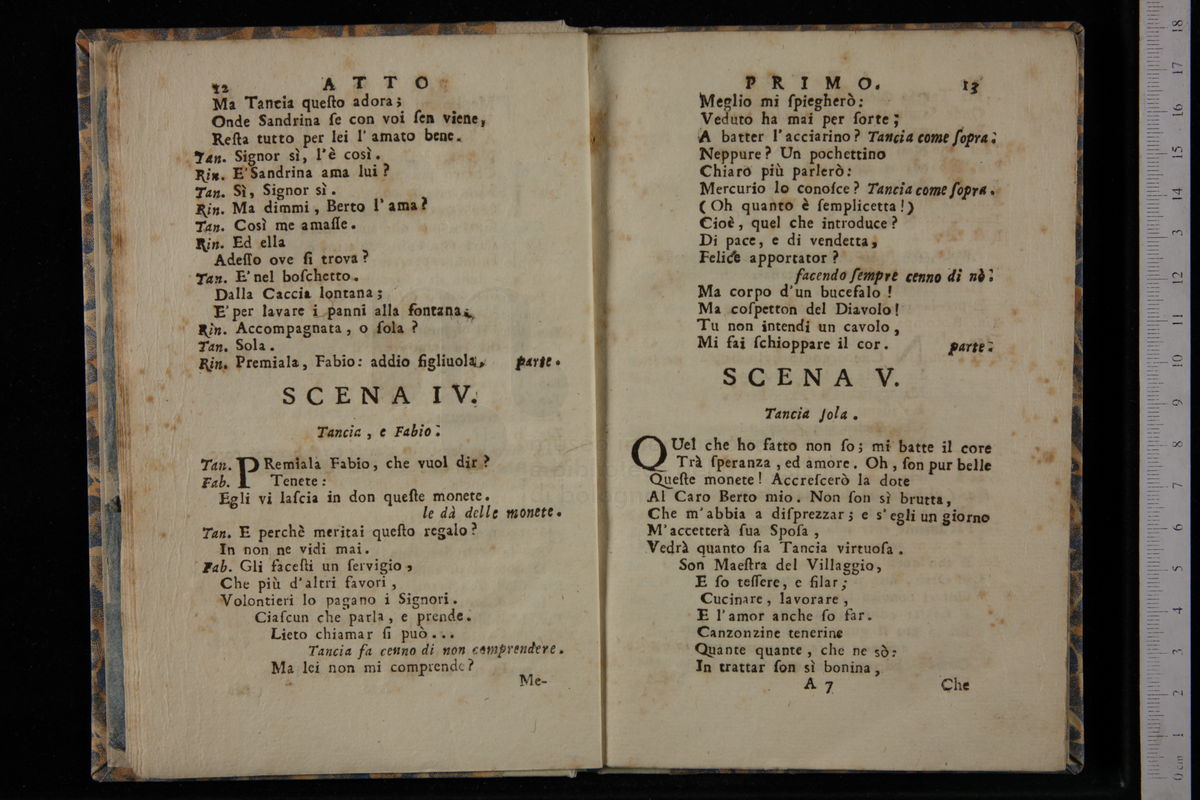 12 ATTO
Ma Tancia queſto adora;
Onde Sandrina ſe con voi ſen viene,
Reſta tutto per lei l'amato bene.
Tan. Signor sì, l'è così.
Rin. E' Sandrina ama lui?
Tan. Sì, Signor sì.
Rin. Ma dimmi, Berto l'ama?
Tan. Così me amaſſe.
Rin. Ed ella
Adeſſo ove ſi trova?
Tan. E' nel boſchetto.
Dalla Caccia lontana;
E' per lavare i panni alla fontana.
Rin. Accompagnata, o ſola?
Tan. Sola.
Rin. Premiala, Fabio: addio figliuola. parte.
SCENA IV.
Tancia, e Fabio.
Tan. PRemiala Fabio, che vuol dir?
Fab. Tenete:
Egli vi laſcia in don queſte monete.
le dà delle monete.
Tan. E perchè meritai queſto regalo?
In non ne vidi mai.
Fab. Gli faceſti un ſervigio,
Che più d'altri favori,
Volontieri lo pagano i Signori.
Ciaſcun che parla, e prende.
Lieto chiamar ſi può...
Tancia fa cenno di non comprendere.
Ma lei non mi comprende?
Me-
PRIMO. 13
Meglio mi ſpiegherò:
Veduto ha mai per ſorte;
A batter l'acciarino? Tancia come ſopra.
Neppure? Un pochettino
Chiaro più parlerò:
Mercurio lo conoſce? Tancia come ſopra.
(Oh quanto è ſemplicetta!)
Cioè, quel che introduce?
Di pace, e di vendetta,
Felice apportator?
facendo ſempre cenno di nò.
Ma corpo d'un bucefalo!
Ma coſpetton del Diavolo!
Tu non intendi un cavolo,
Mi fai ſchioppare il cor. parte.
SCENA V.
Tancia ſola.
QUel che ho fatto non ſo; mi batte il core
Trà ſperanza, ed amore. Oh, ſon pur belle
Queſte monete! Accreſcerò la dote
Al Caro Berto mio. Non ſon sì brutta,
Che m'abbia a diſprezzar; e s'egli un giorno
M'accetterà ſua Spoſa,
Vedrà quanto ſia Tancia virtuoſa.
Son Maeſtra del Villaggio,
E ſo teſſere, e filar;
Cucinare, lavorare,
E l'amor anche ſo far.
Canzonzine tenerine
Quante quante, che ne sò:
In trattar ſon sì bonina,
A 7 Che
0 cm 1 2 3 4 5 6 7 8 9 10 11 12 13 14 15 16 17 18